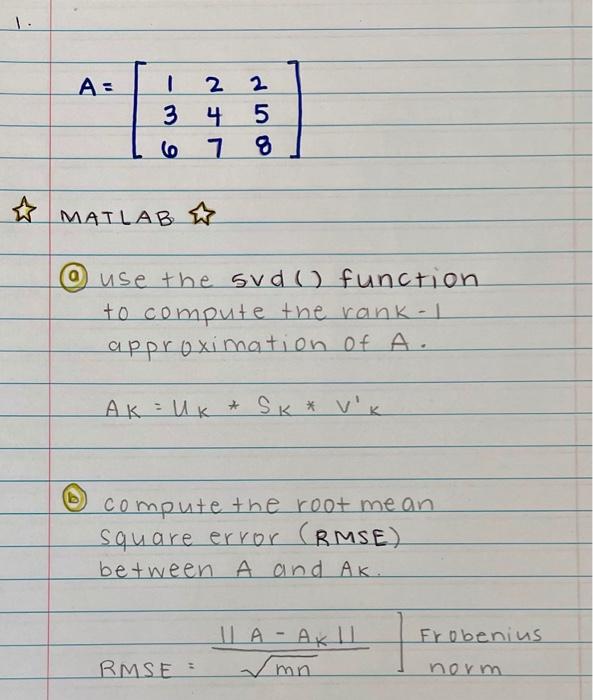 1.
A = [ 1 2 2
3 4 5
6 7 8 ]
☆ MATLAB ☆
(a) use the svd() function
to compute the rank-1
approximation of A.
AK = UK * SK * V'K
(b) compute the root mean
square error (RMSE)
between A and AK.
|| A - AK || ] Frobenius
RMSE = √mn norm